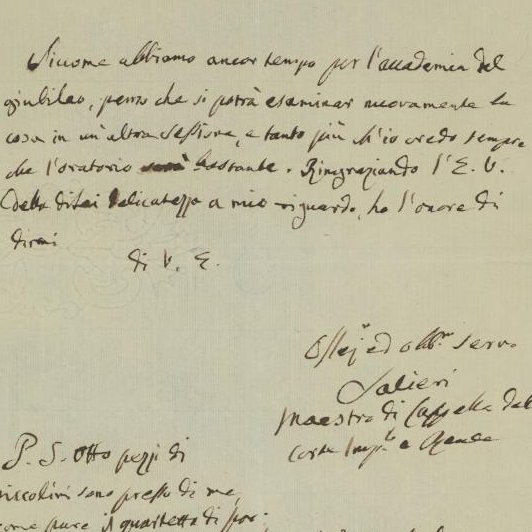 Siccome abbiamo ancor tempo per l'accademia del
giubileo, penso che si potrà esaminar nuovamente la
cosa in un'altra Sessione, e tanto più ch'io credo sempre
che l'oratorio sarà bastante. Ringraziando l'E. V.
della di Lei delicatezza a mio riguardo, ho l'onore di
dirmi
di V. E.
ed obb.mo servo
Salieri
Maestro di Cappella della
corte Imp.le e
P. S. Otto pezzi di
sono presso di me,
come pure il quartetto di